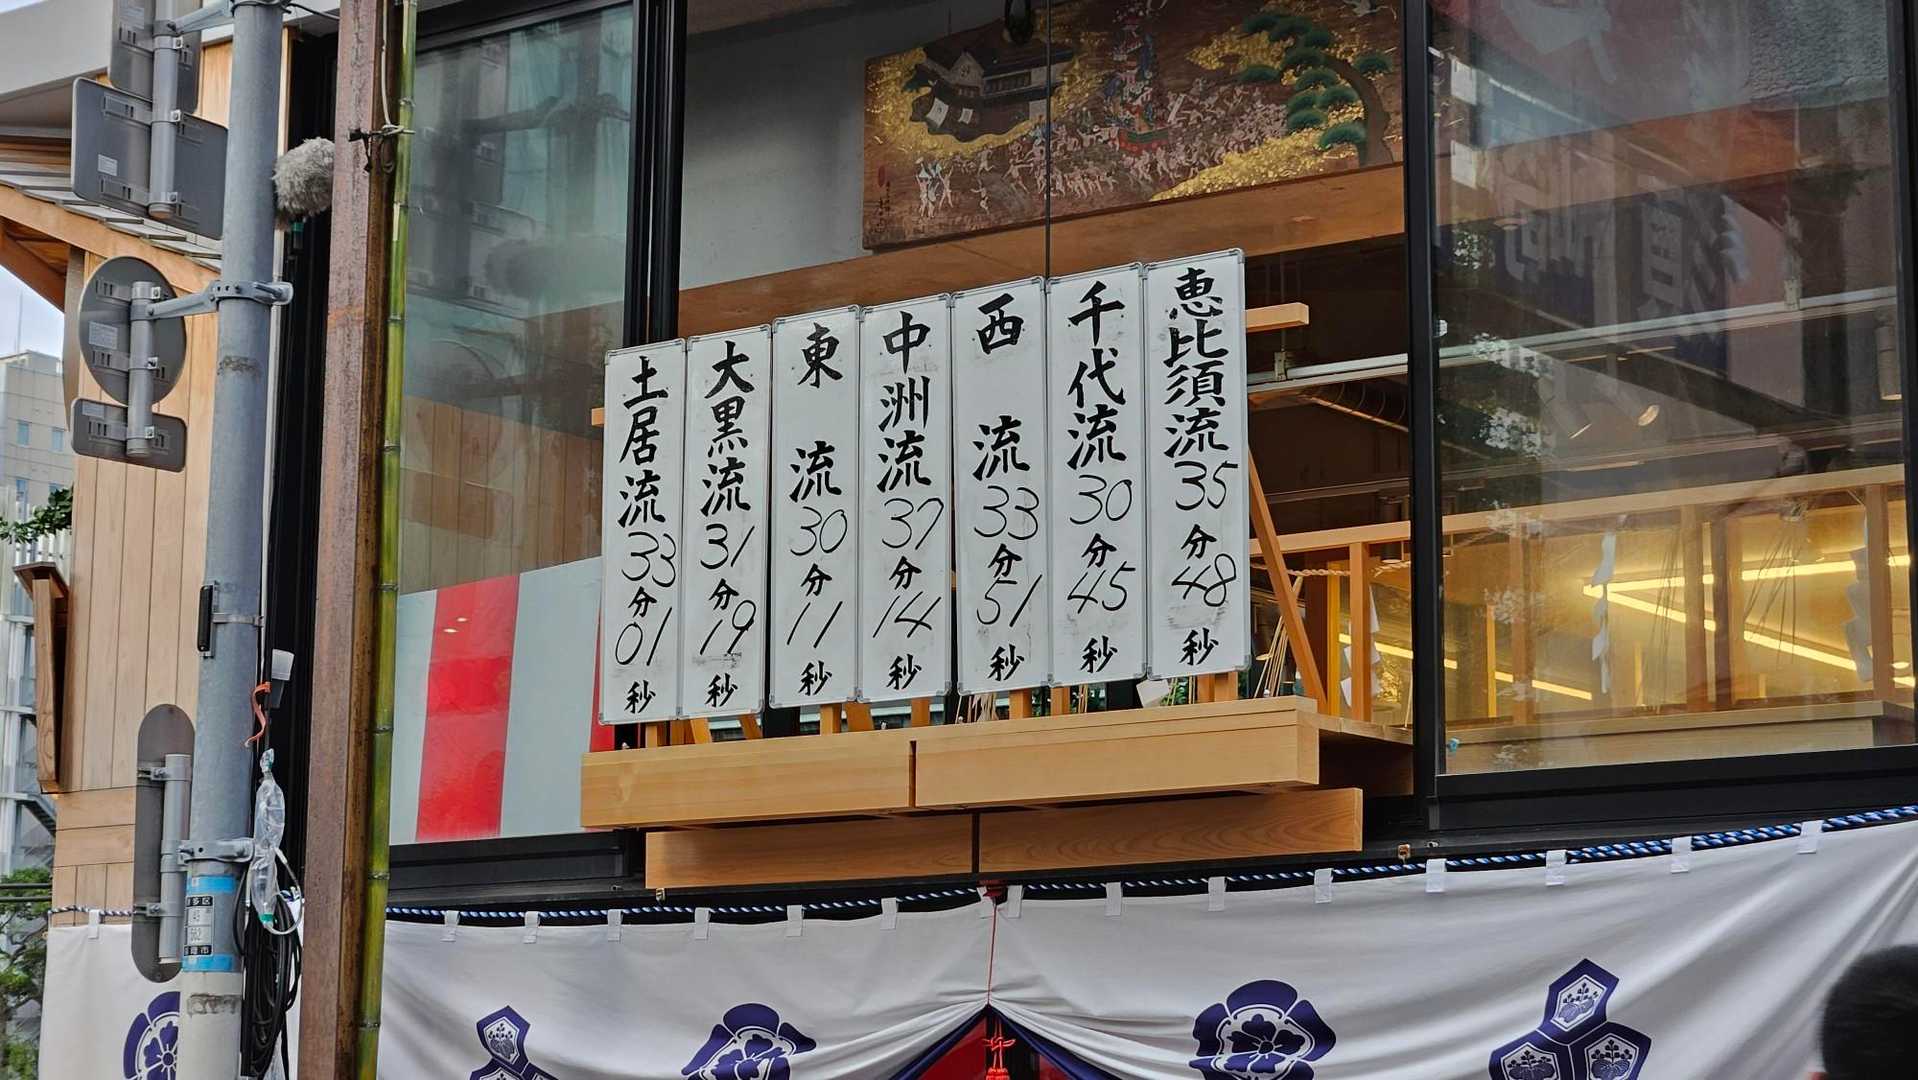 恵比須流35分48秒
千代流30分45秒
西流33分51秒
中洲流37分14秒
東流30分11秒
大黒流31分19秒
土居流33分01秒